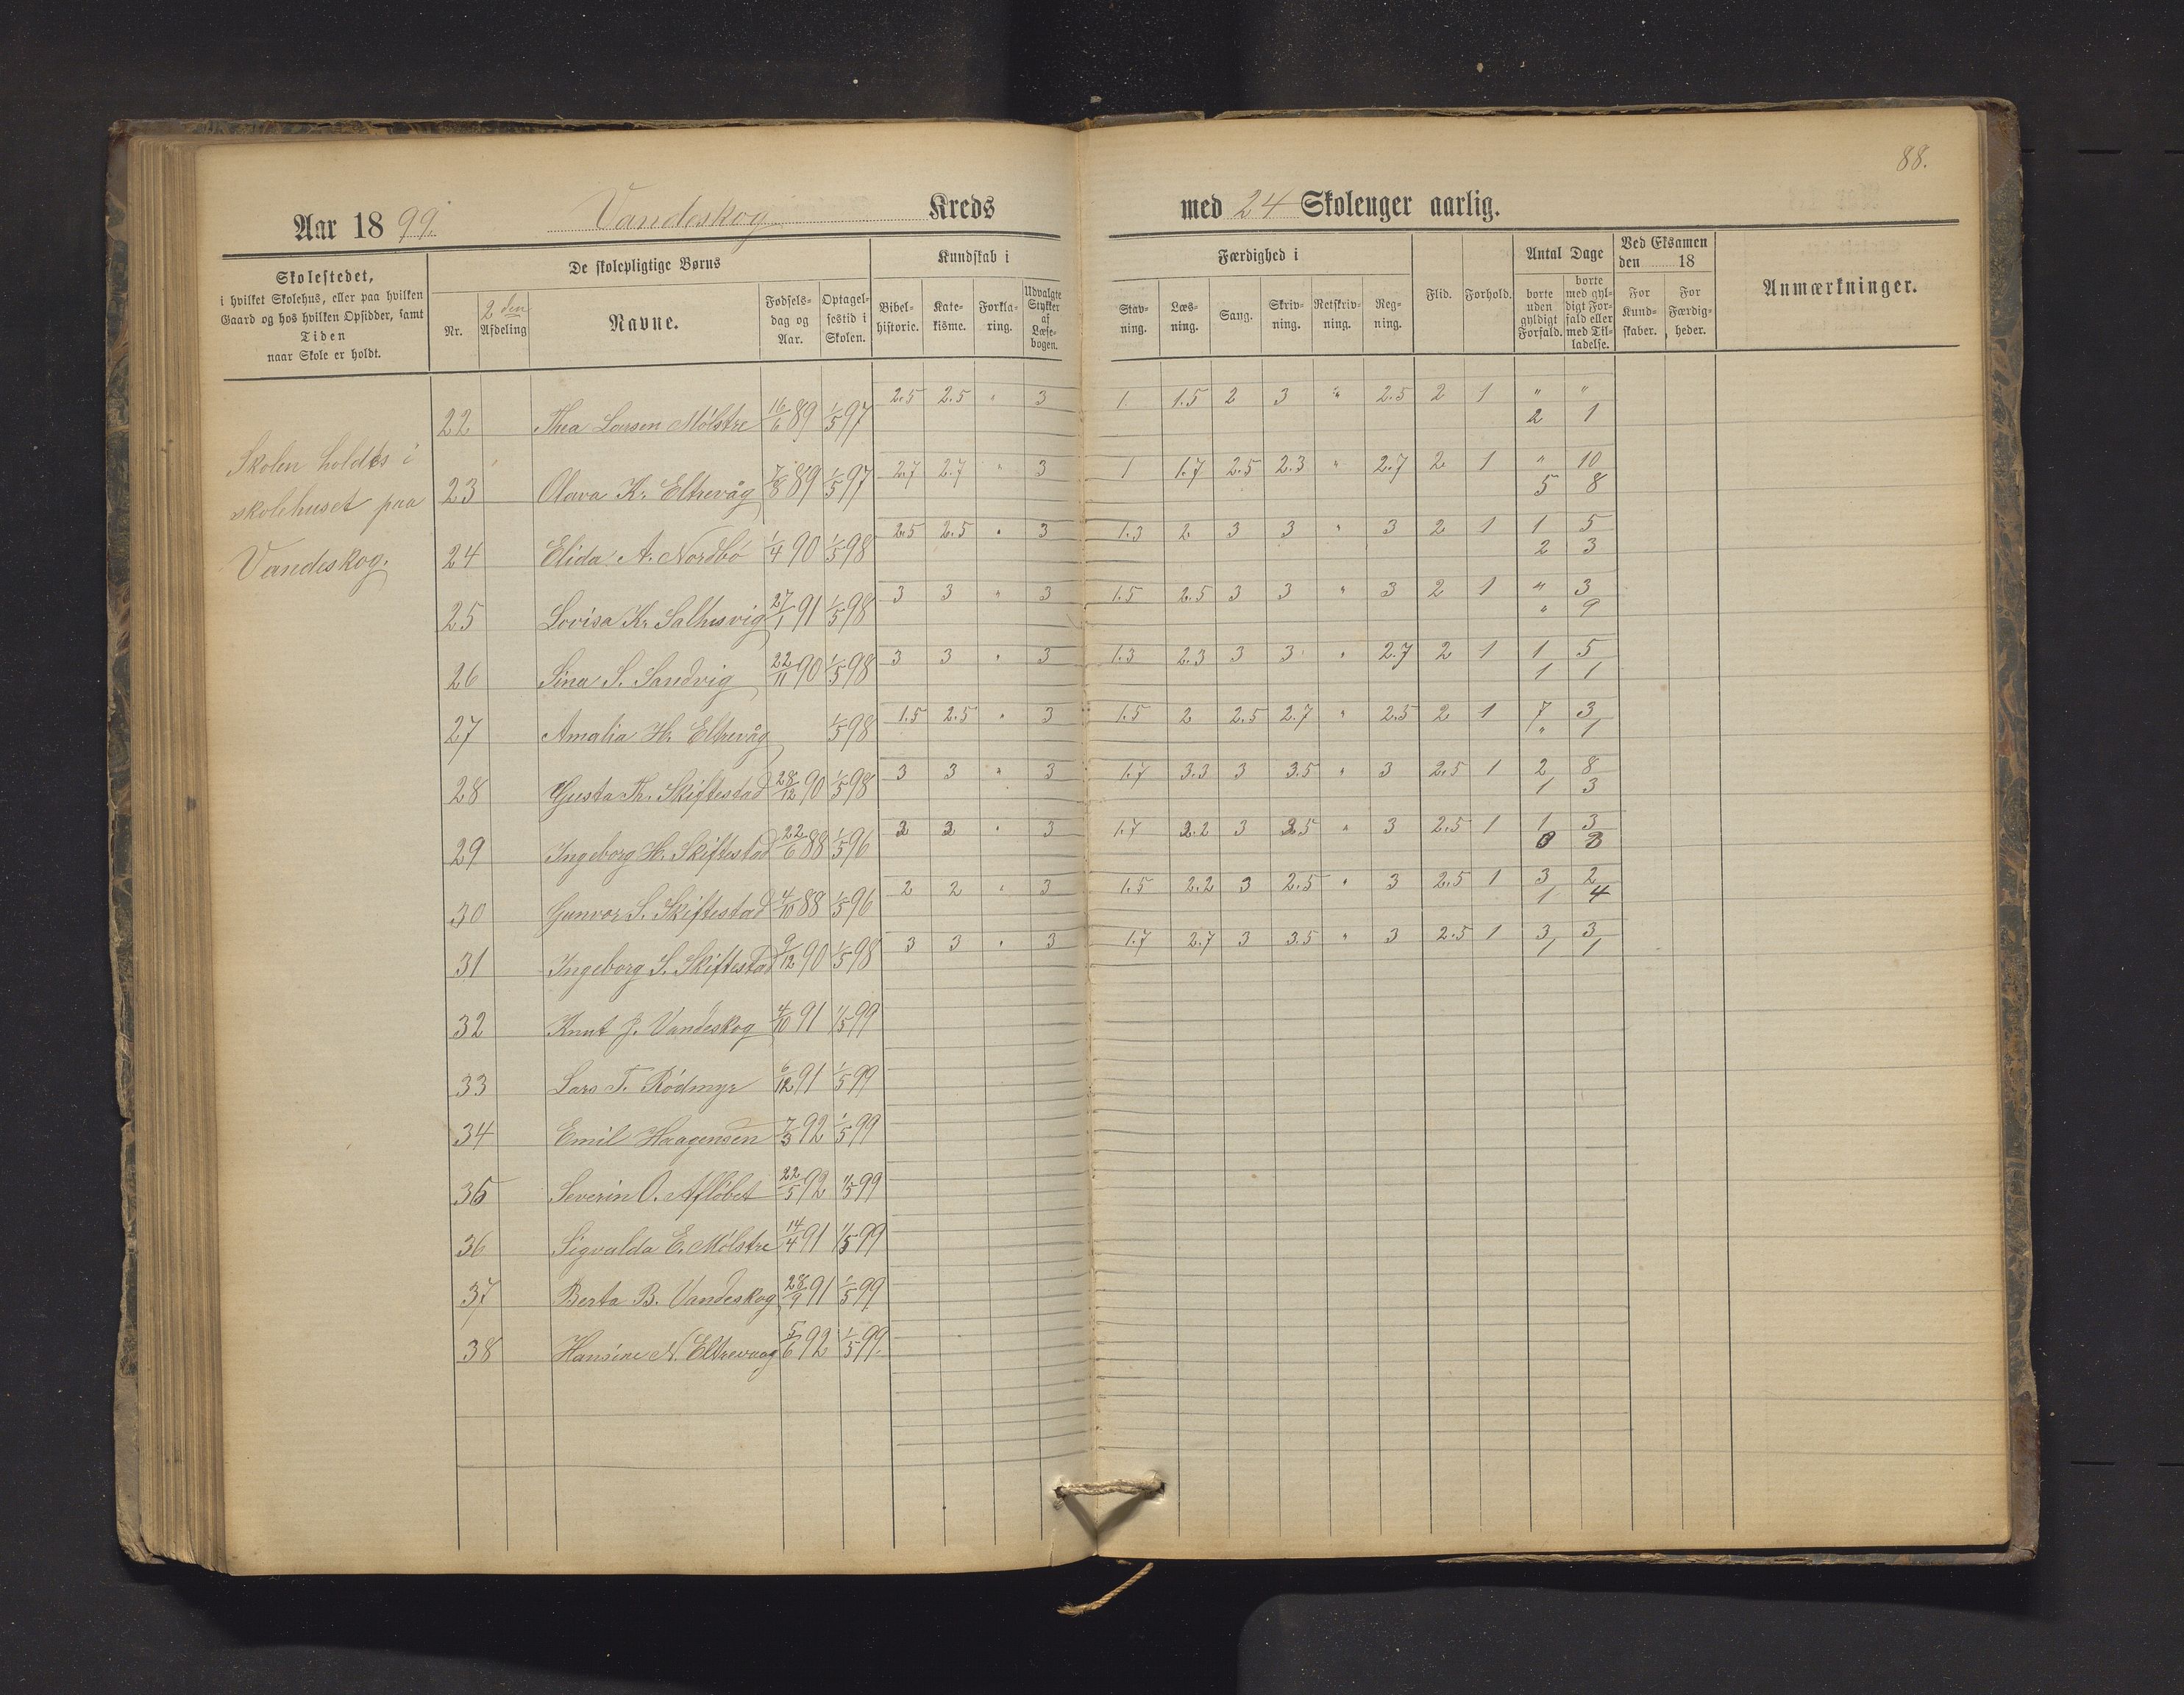 88.
Aar 1899. Vandeskog Kreds med 24 Skoleuger aarlig.
Skolestedet,
i hvilket Skolehus, eller paa hvilken
Gaard og hos hvilken Opsidder, samt
Tiden
naar Skole er holdt.
De skolepligtige Børns
Nr.
2den
Afdeling
Navne.
Fødsels-
dag og
Aar.
Optagel-
sestid i
Skolen.
Kundskab i
Bibel-
historie.
Kate-
kisme.
Forkla-
ring.
Udvalgte
Stykker
af
Læse-
bogen.
Færdighed i
Stav-
ning.
Læs-
ning.
Sang.
Skriv-
ning.
Retskriv-
ning.
Reg-
ning.
Flid.
Forhold.
Antal Dage
borte
uden
gyldigt
Forfald.
borte
med gyl-
digt For-
fald eller
med Til-
ladelse.
Ved Eksamen
den 18
For
Kund-
skaber.
For
Færdig-
heder.
Anmærkninger.
Skolen holdtes i
skolehuset paa
Vandeskog.
22 Thea Larsen Mølstre 16/6 89 1/5 97 2.5 2.5 " 3 1 1.5 2 3 " 2.5 2 1 " "
2 1
23 Olava K. Eltrevåg 7/8 89 1/5 97 2.7 2.7 " 3 1 1.7 2.5 2.3 " 2.7 2 1 " 10
5 8
24 Elida A. Nordbø 1/4 90 1/5 98 2.5 2.5 " 3 1.3 2 3 3 " 3 2 1 1 5
2 3
25 Lovisa K. Salhusvig 27/1 91 1/5 98 3 3 " 3 1.5 2.5 3 3 " 3 2 1 " 3
" 9
26 Sina S. Sandvig 22/11 90 1/5 98 3 3 " 3 1.3 2.3 3 3 " 2.7 2 1 1 5
1 1
27 Amalia H. Eltrevåg 1/5 98 1.5 2.5 " 3 1.5 2 2.5 2.7 " 2.5 2 1 7 3
" 1
28 Gusta Th. Skiftestad 28/12 90 1/5 98 3 3 " 3 1.7 3.3 3 3.5 " 3 2.5 1 2 8
1 3
29 Ingeborg H. Skiftestad 22/6 88 1/5 96 2 2 " 3 1.7 2.2 3 2.5 " 3 2.5 1 1 3
0 3
30 Gunvor S. Skiftestad 4/10 88 1/5 96 2 2 " 3 1.5 2.2 3 2.5 " 3 2.5 1 3 2
1 4
31 Ingeborg S. Skiftestad 9/12 90 1/5 98 3 3 " 3 1.7 2.7 3 3.5 " 3 2.5 1 3 3
1 1
32 Knut J. Vandeskog 4/10 91 1/5 99
33 Lars T. Rødmyr 6/12 91 1/5 99
34 Emil Haagensen 7/3 92 1/5 99
35 Severin O. Afløbet 22/5 92 1/5 99
36 Sigvalda E. Mølstre 14/4 91 1/5 99
37 Berta B. Vandeskog 28/9 91 1/5 99
38 Hansine N. Eltrevaag 5/6 92 1/5 99.